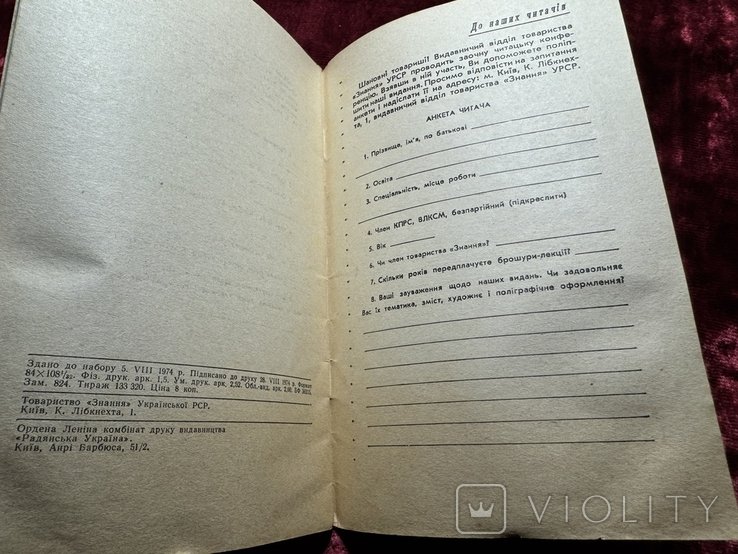 Здано до набору 5. VIII 1974 р. Підписано до друку 28. VIII 1974 р. Формат
84×108¹/₃₂. Фіз. друк. арк. 1,5. Ум. друк. арк. 2,52. Обл.-вид. арк. 2,60. БФ
Зам. 824. Тираж 133 320. Ціна 8 коп.
Товариство «Знання» Української РСР.
Київ, К. Лібкнехта, 1.
Ордена Леніна комбінат друку видавництва
«Радянська Україна».
Київ, Анрі Барбюса, 51/2.
До наших читачів
Шановні товариші! Видавничий відділ товариства
«Знання» УРСР проводить заочну читацьку конфе-
ренцію. Взявши в ній участь, Ви допоможете поліп-
шити наші видання. Просимо відповісти на запитання
анкети і надіслати її на адресу: м. Київ, К. Лібкнех-
та, 1, видавничий відділ товариства «Знання» УРСР.
АНКЕТА ЧИТАЧА
1. Прізвище, ім'я, по батькові
2. Освіта
3. Спеціальність, місце роботи
4. Член КПРС, ВЛКСМ, безпартійний (підкреслити)
5. Вік
6. Чи член товариства «Знання»?
7. Скільки років передплачуєте брошури-лекції?
8. Ваші зауваження щодо наших видань. Чи задовольняє
Вас їх тематика, зміст, художнє і поліграфічне оформлення?
VIOLITY